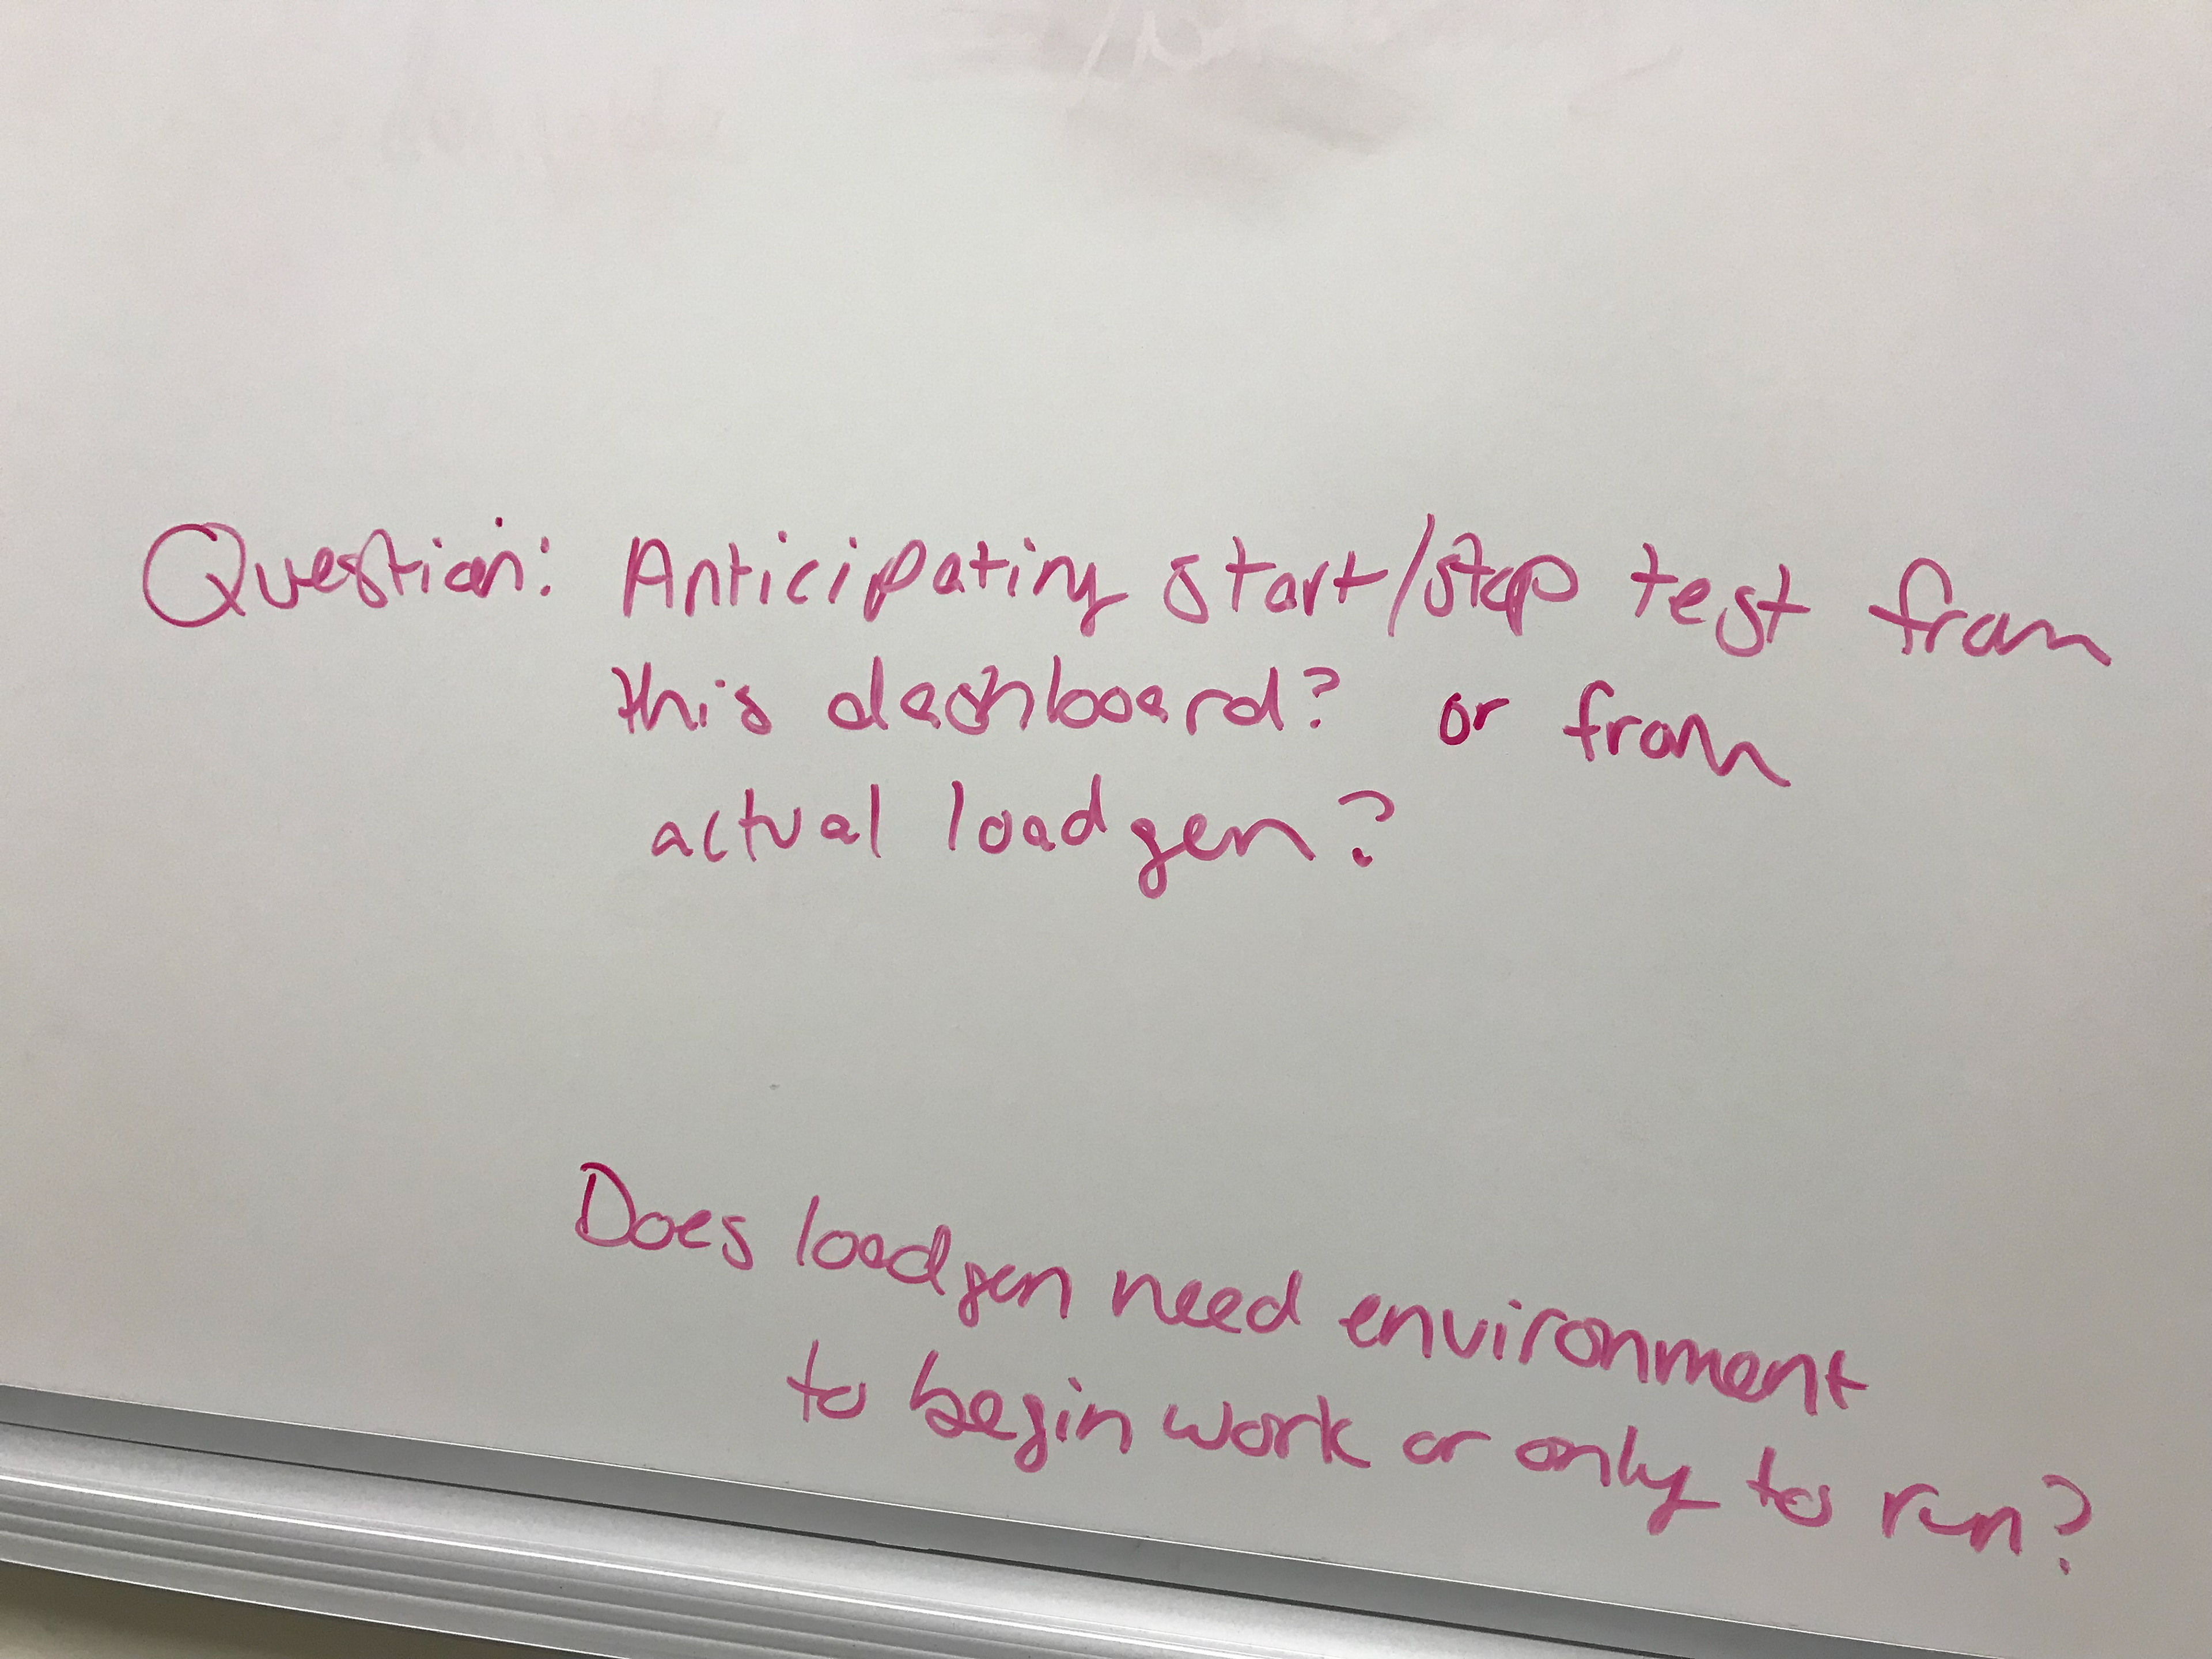 Question: Anticipating start/stop test from
this dashboard? or from
actual loadgen?
Does loadgen need environment
to begin work or only to run?